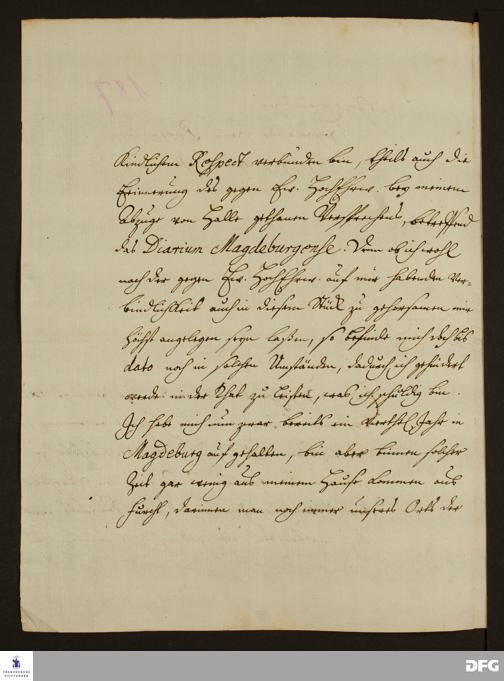 187
Kindlichem Respect verbunden bin, theils auch die
Erinnerung des gegen Ew. HochEhrw. bey meinem
Abzuge von Halle gethanen Versprechens, betreffend
das Diarium Magdeburgense. Denn ob ich wohl
nach der gegen Ew. HochEhrw. auf mir habenden Ver-
bindlichkeit auch in diesem Stück zu gehorsamen mir
höchst angelegen seyn laßen, so befinde mich doch bis
dato noch in solchen Umständen, dadurch ich gehindert
werde in der That zu leisten, was ich schuldig bin.
Ich habe mich nun zwar bereits ein Viertel Jahr in
Magdeburg aufgehalten, bin aber binnen solcher
Zeit gar wenig aus meinem Hause kommen aus
Furcht, darinnen man noch immer unsers Orts der
FRANCKESCHE
STIFTUNGEN
DFG